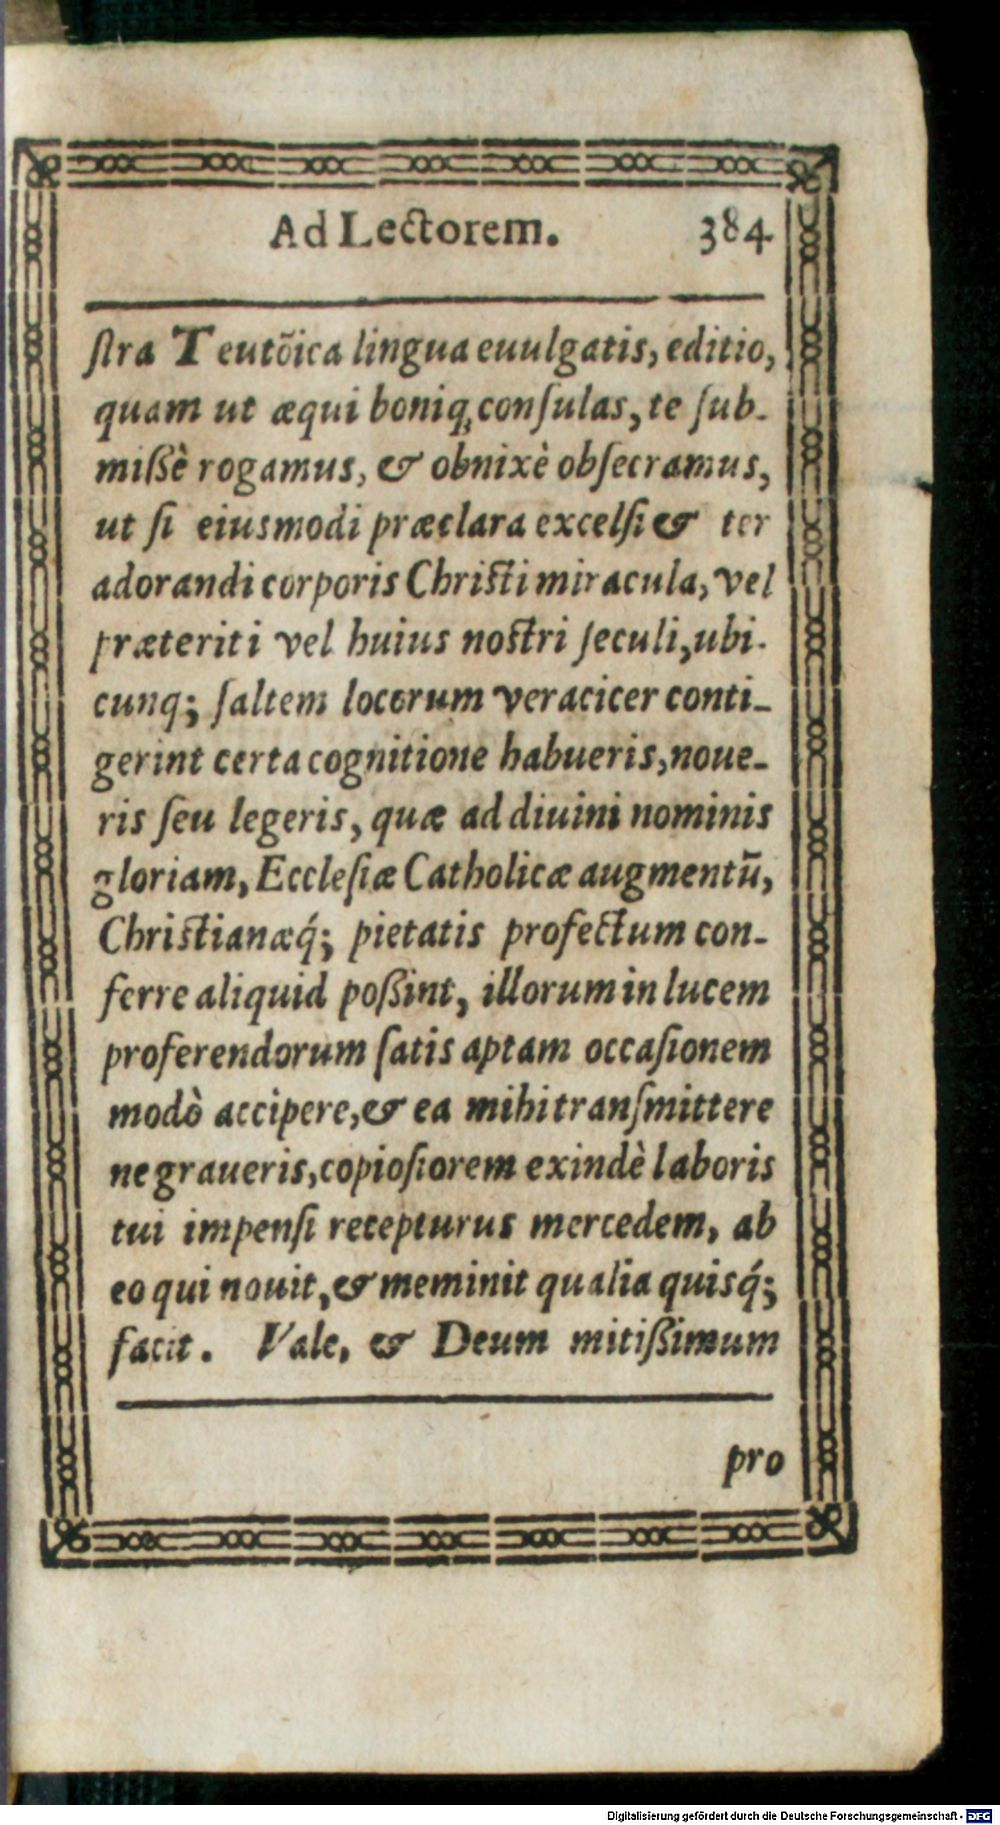 Ad Lectorem. 384
ſtra Teutõica lingua euulgatis, editio,
quam ut æqui boniq́; conſulas, te ſub-
mißè rogamus, & obnixè obſecramus,
ut ſi eiusmodi præclara excelſi & ter
adorandi corporis Chriſti miracula, vel
præteriti vel huius noſtri ſeculi, ubi-
cunq; ſaltem locorum veracicer conti-
gerint certa cognitione habueris, noue-
ris ſeu legeris, quæ ad diuini nominis
gloriam, Eccleſiæ Catholicæ augmentũ,
Chriſtianæq́; pietatis profectum con-
ferre aliquid poßint, illorum in lucem
proferendorum ſatis aptam occaſionem
modò accipere, & ea mihi tranſmittere
ne graueris, copioſiorem exindè laboris
tui impenſi recepturus mercedem, ab
eo qui nouit, & meminit qualia quisq́;
facit. Vale, & Deum mitißimum
pro
Digitalisierung gefördert durch die Deutsche Forschungsgemeinschaft - DFG